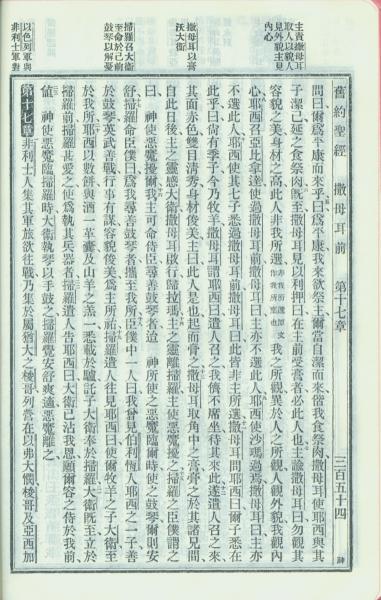 主責撒母耳
取人以貌人
見外貌主見
內心
撒母耳以膏
沃大衛
掃羅召大衛
至命於己前
鼓琴以解憂
以色列軍與
非利士軍對
舊約聖經 撒母耳前 第十七章 三百五十四
問曰爾爲平康而來乎曰爲平康我來欲祭主爾當自潔而來偕我食祭肉撒母耳使耶西與其
子潔己延之食祭肉既至撒母耳見以利押曰在主前受膏者必此人也主諭撒母耳曰勿觀其
容貌之美身材之高此人非我所選我之所觀異於人之所觀人觀外貌我觀內
心耶西召亞比拿達使過撒母耳前撒母耳曰主亦不選此人耶西使沙瑪過焉撒母耳曰主亦
不選此人耶西使其七子悉過撒母耳前撒母耳曰此皆非主所選撒母耳問耶西曰爾子悉在
此乎曰尚有季子今乃牧羊撒母耳謂耶西曰遣人召之我儕不席坐待其來此遂遣人召之來
其面赤色雙目清秀身材俊美主曰此人是也起而膏之撒母耳取角中之膏膏之於其諸兄間
自此日後主之靈感大衛撒母耳啟行歸拉瑪主之靈離掃羅主使惡魔擾之掃羅之臣僕謂之
曰神使惡魔擾爾我主可命侍臣尋善鼓琴者迨神所使之惡魔臨爾時使之鼓琴爾則安
舒掃羅命臣僕曰爲我尋善鼓琴者攜至我所臣僕中一人曰我曾見伯利恆人耶西之一子善
於鼓琴英武善戰行事有謀容貌俊美爲主所祐掃羅遣人往見耶西曰使爾牧羊之子大衛至
於我所耶西以數餅與酒一革囊及山羊之羔一悉載於驢託子大衛奉於掃羅大衛既至立於
掃羅前掃羅甚愛之使爲執其兵器者掃羅遣人告耶西曰大衛已沾我恩願爾容之侍於我前
値神使惡魔臨掃羅時大衛執琴以手鼓之掃羅覺安舒爽適惡魔離之
第十七章 非利士人集其軍旅欲往戰乃集於屬猶大之梭哥列營在以弗大憫梭哥及亞西加